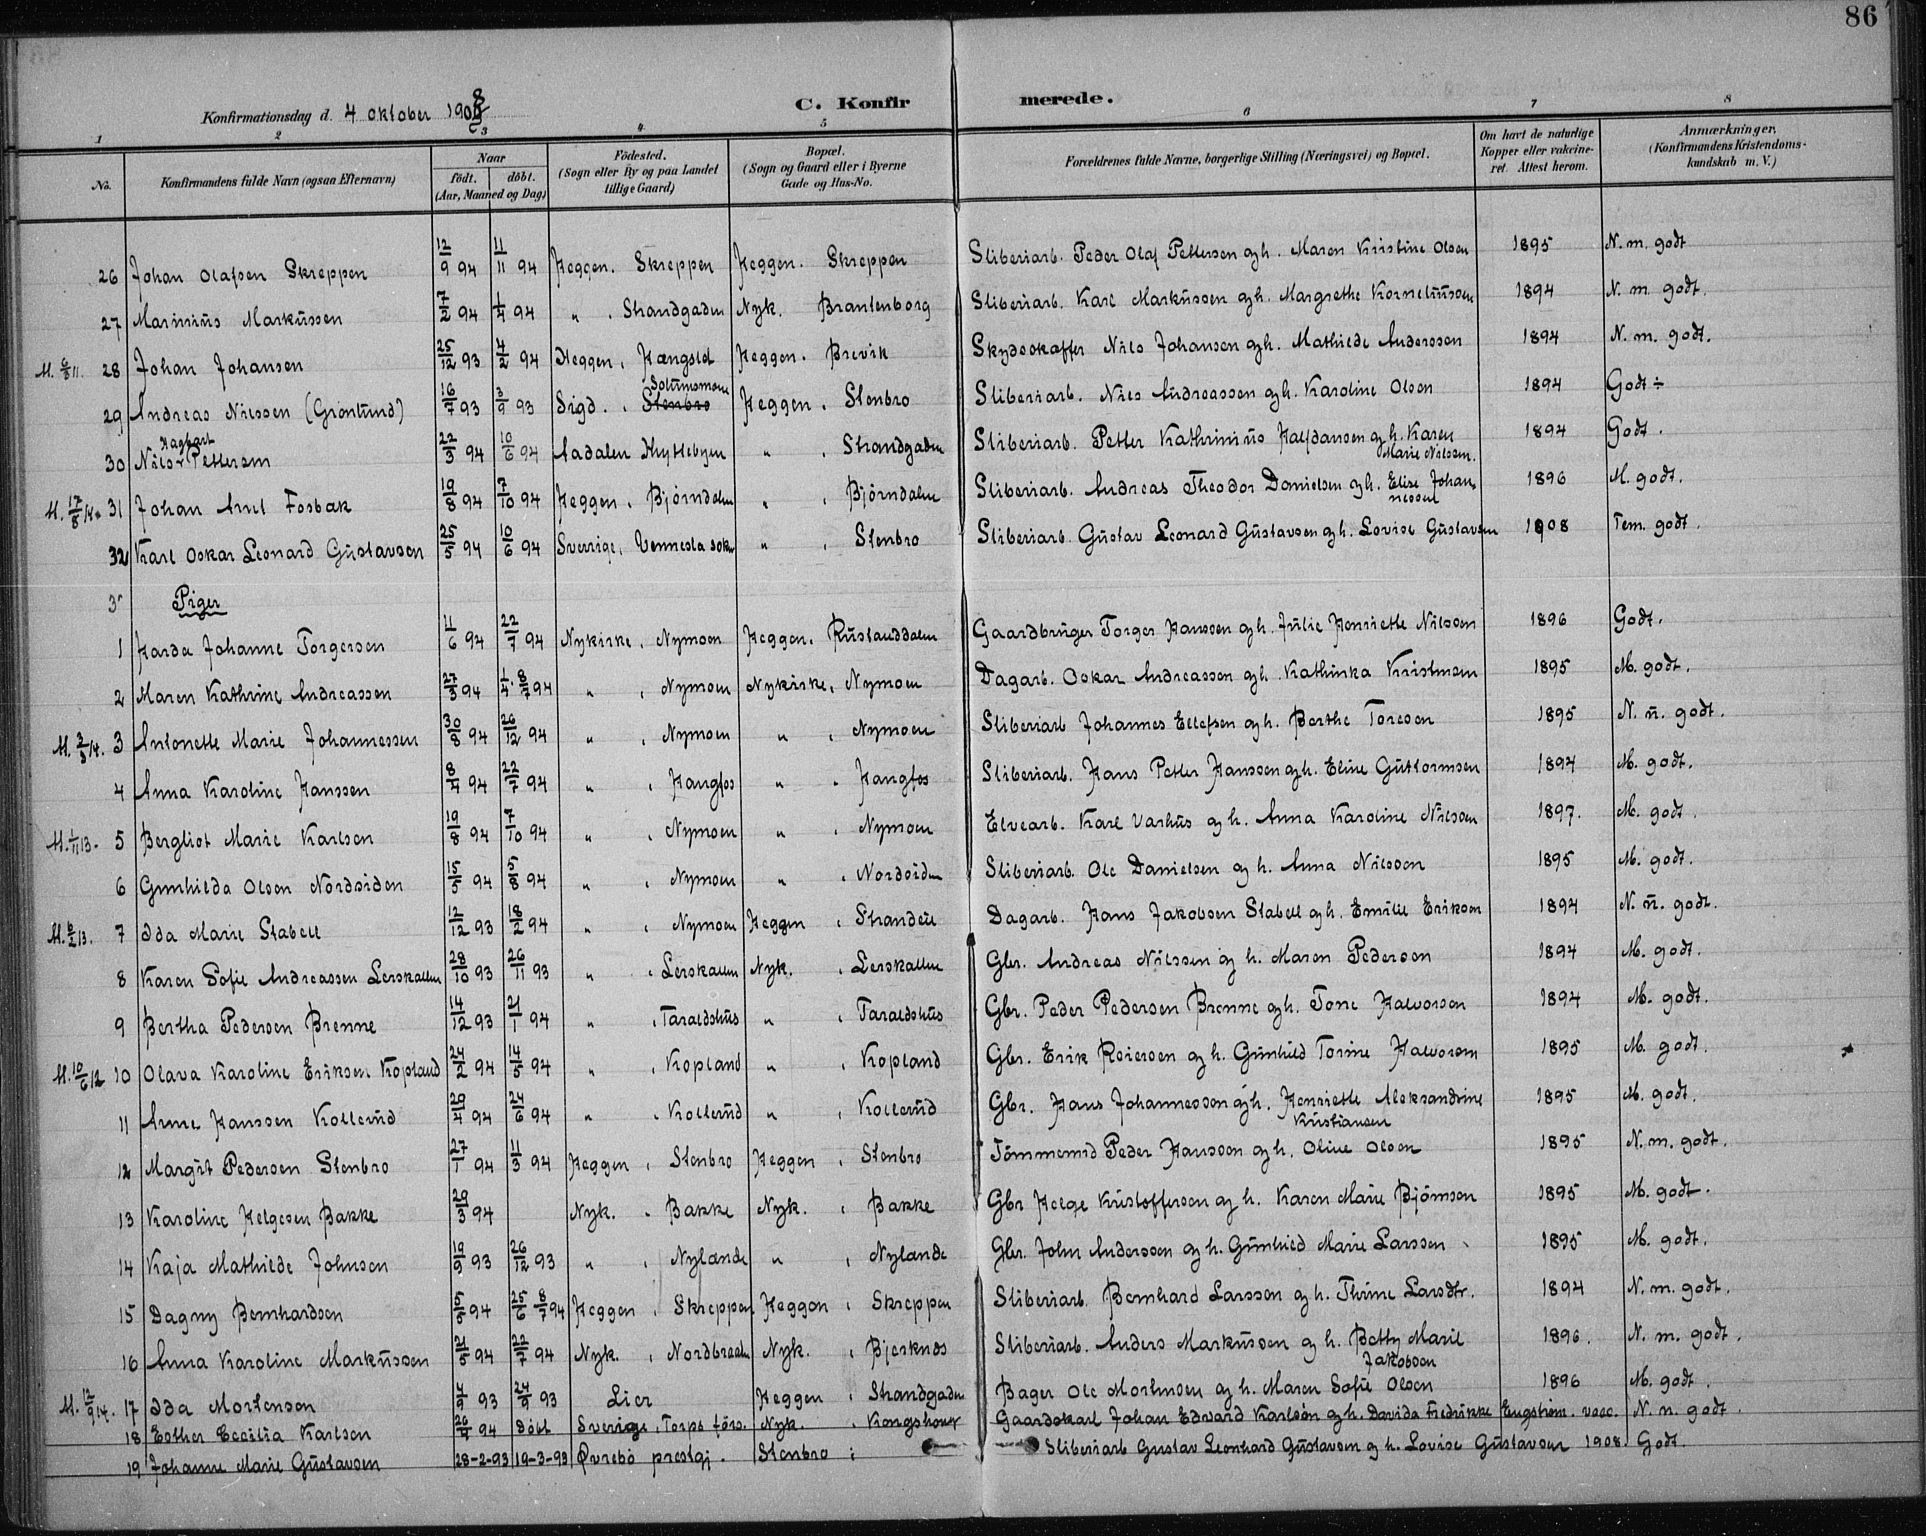 86
C. Konfirmerede.
Konfirmationsdag d. 4 Oktober 1908
1 2 3 4 5 6 7 8
No.
Konfirmandens fulde Navn (ogsaa Efternavn)
Naar
födt. döbt.
(Aar, Maaned og Dag)
Födested.
(Sogn eller By og paa Landet
tillige Gaard)
Bopæl.
(Sogn og Gaard eller i Byerne
Gade og Hus-No.
Forældrenes fulde Navne, borgerlige Stilling (Næringsvei) og Bopæl.
Om havt de naturlige
Kopper eller vakcine-
ret. Attest herom.
Anmærkninger,
(Konfirmandens Kristendoms-
kundskab m. V.)
26 Johan Olafsen Skreppen 12/9 94 11/11 94 Heggen. Skreppen Heggen. Skreppen Sliberiarb. Peder Olaf Pettersen og h. Maren Kristine Olsen 1895 N. m. godt
27 Marinius Markussen 7/2 94 1/4 94 " . Strandgaden Nyk. Brantenborg Sliberiarb. Karl Markussen og h. Margrethe Korneliussen 1894 N. m. godt.
M. 6/8 11. 28 Johan Johansen 25/12 93 4/2 94 Heggen, Kængsld Heggen. Brevik Skydsskaffer Nils Johansen og h. Mathilde Anderssen 1894 N. m. godt.
29 Andreas Nilssen (Grönlund) 16/7 93 3/9 93 Sigd. . Stenbro Solumsmoen Heggen . Stenbro Sliberiarb. Nils Andreassen og h. Karoline Olsen 1894 Godt ÷
30 Nils Hagbart Pettersen 22/3 94 10/6 94 Aadalen Hyttebyen " . Strandgaden Sliberiarb. Petter Kathrinius Halfdansen og h. Karen
Marie Nilssen. 1894 Godt.
M. 17/8 14. 31 Johan Arnt Fosbak 19/8 94 7/10 94 Heggen . Bjørndalen " . Bjørndalen Sliberiarb. Andreas Theodor Danielsen og h. Elise Johan-
nessen 1896 M. godt.
32 Karl Oskar Leonard Gustavsen 25/5 94 10/6 94 Sverige, Vennesla sokn " . Stenbro Sliberiarb. Gustav Leonard Gustavsen og h. Lovise Gustavsen 1908 Tem. godt.
Piger
1 Harda Johanne Torgersen 11/6 94 22/7 94 Nykirke . Nymoen Heggen. Rustanddalen Gaardbruger Torger Hanssen og h. Julie Henriette Nilssen 1896 Godt.
2 Maren Kathrine Andreassen 27/3 94 1/4 . 8/7 94 " . Nymoen Nykirke, Nymoen Dagarb. Oskar Andreassen og h. Kathinka Kristensen 1895 M. godt.
M. 3/3 14. 3 Antonette Marie Johannessen 30/8 94 26/12 94 " . Nymoen " . Nymoen Sliberiarb Johannes Ellefsen og h. Berthe Toresen 1895 N. n. godt.
4 Anna Karoline Hanssen 8/4 94 22/7 94 " . Haugfos " . Haugfos Sliberiarb. Hans Petter Hanssen og h. Eline Guttormsen 1894 M. godt.
M. 1/11 13. 5 Bergliot Marie Karlsen 19/8 94 7/10 94 " . Nymoen " . Nymoen Elvearb. Karl Varhus og h. Anna Karoline Nilssen 1897. M. godt.
6 Gunhilda Olsen Nordsiden 15/5 94 5/8 94 " . Nymoen " . Nordsiden Sliberiarb. Ole Danielsen og h. Anna Nilssen 1895 M. godt.
M. 8/2 13. 7 Ida Marie Stabell 12/12 93 18/2 94 " . Nymoen Heggen . Strandeie Dagarb. Hans Jakobsen Stabell og h. Emilie Eriksen 1894 N. n. godt.
8 Karen Sofie Andreassen Lerskallen 28/10 93 26/11 93 " . Lerskallen Nyk. . Lerskallen Gbr. Andreas Nilssen og h. Maren Pedersen 1894 M. godt.
9 Bertha Pedersen Brenne 14/12 93 21/1 94 " . Taraldshus " . Taraldshus Gbr. Peder Pedersen Brenne og h. Tone Halvorsen 1894 M. godt.
M. 10/6 12 10 Olava Karoline Eriksen Kopland 24/2 94 14/5 94 " . Kopland " . Kopland Gbr. Erik Reiersen og h. Gunhild Torine Halvorsen 1895 M. godt.
11 Anne Hanssen Kollerud 29/4 94 24/6 94 " . Kollerud " . Kollerud Gbr. Hans Johannessen og h. Henriette Aleksandrine
Kristiansen 1895 M. godt.
12 Margit Pedersen Stenbro 27/1 94 11/3 94 Heggen . Stenbro Heggen . Stenbro Tömmermd Peder Hanssen og h. Oline Olsen 1895 N. m. godt.
13 Karoline Helgesen Bakke 29/3 94 Nyk. . Bakke Nyk. . Bakke Gbr Helge Kristoffersen og h. Karen Marie Bjørnsen 1895 M. godt.
14 Kaja Mathilde Johnsen 19/9 93 26/12 93 " . Nylande " . Nylande Gbr. John Anderssen og h. Gunhild Marie Larssen 1895 M. godt.
15 Dagny Bernhardsen 5/5 94 25/6 8/7 94 Heggen . Skreppen Heggen . Skreppen Sliberiarb. Bernhard Larssen og h. Thrine Larsdtr. 1894 N. m. godt.
16 Anna Karoline Markussen 21/5 94 22/7 94 Nyk. . Nordbraaten Nyk. . Bjerknes Sliberiarb. Anders Markussen og h. Betty Marie
Jakobsen 1896. N. m. godt.
M. 12/9 14. 17 Ida Mortensen 4/9 93 24/9 93 Lier Heggen . Strandgaden Bager Ole Mortensen og h. Maren Sofie Olsen 1896 M. godt.
18 Esther Cecilia Karlsen 26/4 94 Döbt Sverige . Torps förs. Nyk. . Kongshover Gaardskarl Johan Edvard Karlsén og h. Davida Fredrikke Engström. vacc. N. n. godt.
19 Johanne Marie Gustavsen 28-2-93 19-3-93 Øvrebö prestgj. Stenbro Sliberiarb Gustav Leonhard Gustavsen og h. Lovise Gustavsen 1908 Godt.